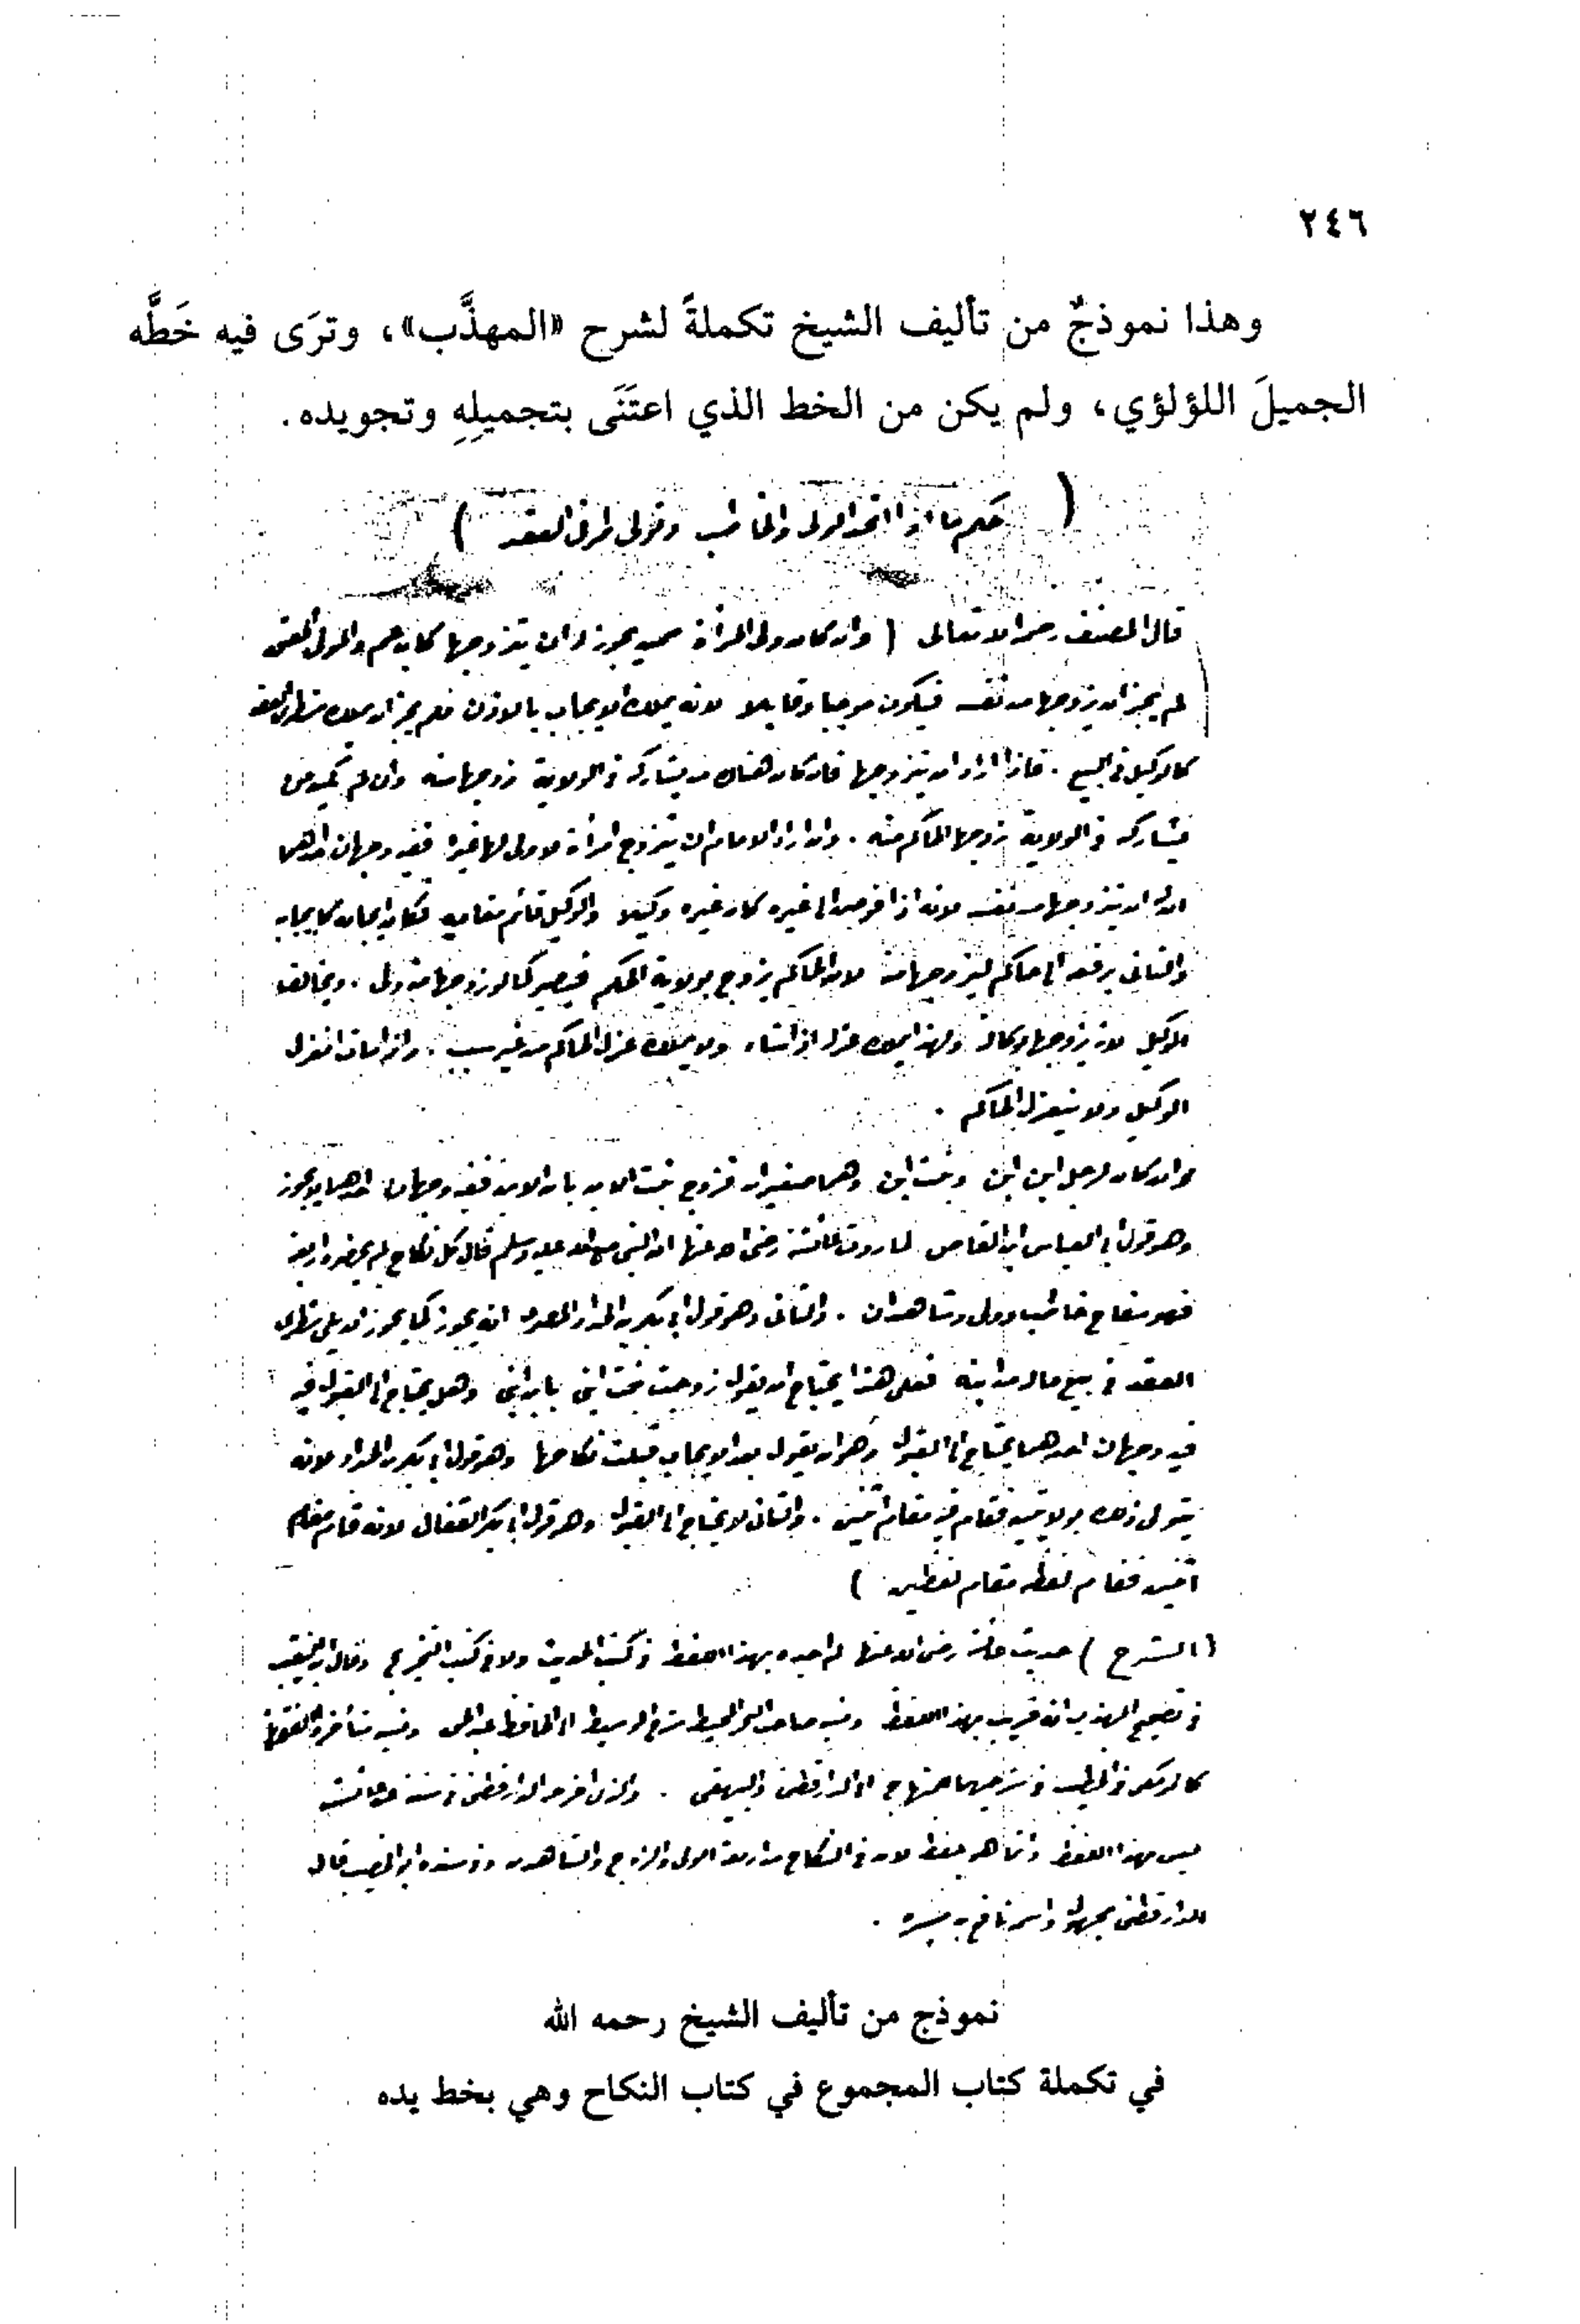 ٢٤٦
وهذا نموذجٌ من تأليف الشيخ تكملةً لشرح «المهذَّب»، وترَى فيه خَطَّه
الجميلَ اللؤلؤي، ولم يكن من الخط الذي اعتَنَى بتجميلِهِ وتجويده.
( حكم ما اذا اتحد الولى والخاطب وتولى طرفى العقد )
قال المصنف رحمه الله تعالى ( وان كان ولى المرأة ممن يجوز له ان يتزوجها كابن عم والمولى المعتق
لم يجز ان يزوجها من نفسه فيكون موجبا وقابلا لانه يملك الايجاب بالاذن فلم يجز ان يملك شطرى العقد
كالوكيل فى البيع . فاذا اراد ان يتزوجها فان كان هناك من يشاركه فى الولاية زوجها منه وان لم يكن من
يشاركه فى الولاية زوجها الحاكم منه . وان اراد الامام ان يتزوج امرأة لا ولى لها غيره ففيه وجهان احدهما
ان له ان يتزوجها من نفسه لانه اذا فوض الى غيره كان غيره وكيلا والوكيل قائم مقامه فكان ايجابه كايجابه
والثانى يرفعه الى حاكم ليزوجها منه لان الحاكم يزوج بولاية الحكم فيصير كما لو زوجها منه ولى . ويخالف
الوكيل لانه يزوجها بوكالته ولهذا يملك عزله اذا شاء ولا يملك عزل الحاكم من غير سبب . واذا مات انعزل
الوكيل ولا ينعزل الحاكم .
وان كان لرجل ابن ابن وبنت ابن وهما صغيران فزوج بنت الابن بابن الابن ففيه وجهان احدهما لا يجوز
وهو قول ابى العباس ابن القاص لما روت عائشة رضى الله عنها ان النبى صلى الله عليه وسلم قال كل نكاح لم يحضره اربعة
فهو سفاح خاطب وولى وشاهدان . والثانى وهو قول ابى بكر بن الحداد المصرى انه يجوز كما يجوز ان يلى شطرى
العقد فى بيع ماله من ابنه فعلى هذا يحتاج ان يقول زوجت بنت ابنى بابن ابنى وهل يحتاج الى القبول فيه
فيه وجهان احدهما يحتاج الى القبول وهو ان يقول بعد الايجاب قبلت نكاحها وهو قول ابى بكر بن الحداد لانه
يتولى ذلك بولايتين فقام فيه مقام اثنين . والثانى لا يحتاج الى القبول وهو قول ابى بكر القفال لانه قام مقام
اثنين فقام لفظه مقام لفظين )
( الشرح ) حديث عائشة رضى الله عنها لم اجده بهذا اللفظ فى كتب الحديث ولا فى كتب التخريج وقال
فى تصحيح المهذب انه قريب بهذا اللفظ ونسبه صاحب البحر المحيط شرح الوسيط الى الحافظ عبد الحق ونسبه متأخرو الفقهاء
كالرملى والخطيب فى شرحيهما للمنهاج الى الدارقطنى والبيهقى . والذى اخرجه الدارقطنى فى سننه عن عائشة
ليس بهذا اللفظ وانما هو بلفظ لابد فى النكاح من اربعة الولى والزوج والشاهدين وفى سنده ابو الخصيب قال
الدارقطنى مجهول واسمه نافع بن ميسرة .
نموذج من تأليف الشيخ رحمه الله
في تكملة كتاب المجموع في كتاب النكاح وهي بخط يده